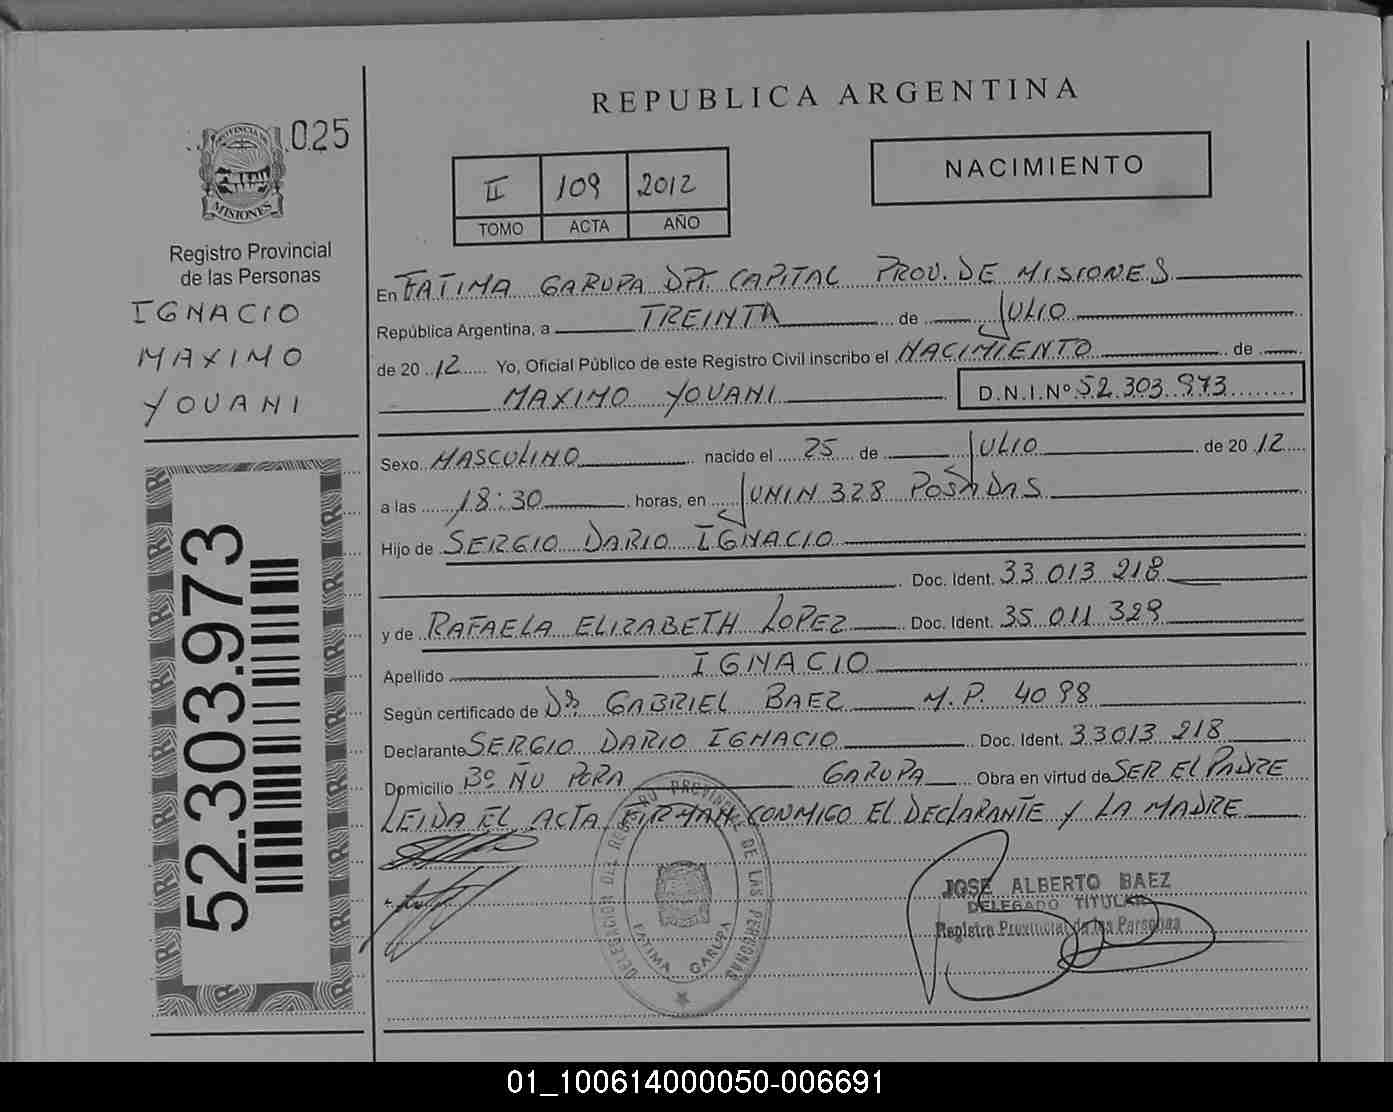 025
PROVINCIA DE
MISIONES
Registro Provincial
de las Personas
IGNACIO
MAXIMO
YOUANI
52.303.973
REPUBLICA ARGENTINA
NACIMIENTO
II 109 2012
TOMO ACTA AÑO
En FATIMA GARUPA DPT. CAPITAL PROV. DE MISIONES
República Argentina, a TREINTA de JULIO
de 20 12 Yo, Oficial Público de este Registro Civil inscribo el NACIMIENTO de
MAXIMO YOUANI D.N.I.Nº 52.303.973
Sexo MASCULINO nacido el 25 de JULIO de 20 12
a las 18:30 horas, en JUNIN 328 POSADAS
Hijo de SERGIO DARIO IGNACIO
Doc. Ident. 33 013 218
y de RAFAELA ELIZABETH LOPEZ Doc. Ident. 35 011 329
Apellido IGNACIO
Según certificado de Dr GABRIEL BAEZ M.P. 4098
Declarante SERGIO DARIO IGNACIO Doc. Ident. 33013 218
Domicilio Bº ÑU PORA GARUPA Obra en virtud de SER EL PADRE
LEIDA EL ACTA FIRMAN CONMIGO EL DECLARANTE Y LA MADRE
DELEGACION DEL REGISTRO PROVINCIAL DE LAS PERSONAS
FATIMA GARUPA
JOSE ALBERTO BAEZ
DELEGADO TITULAR
Registro Provincial de las Personas
01_100614000050-006691